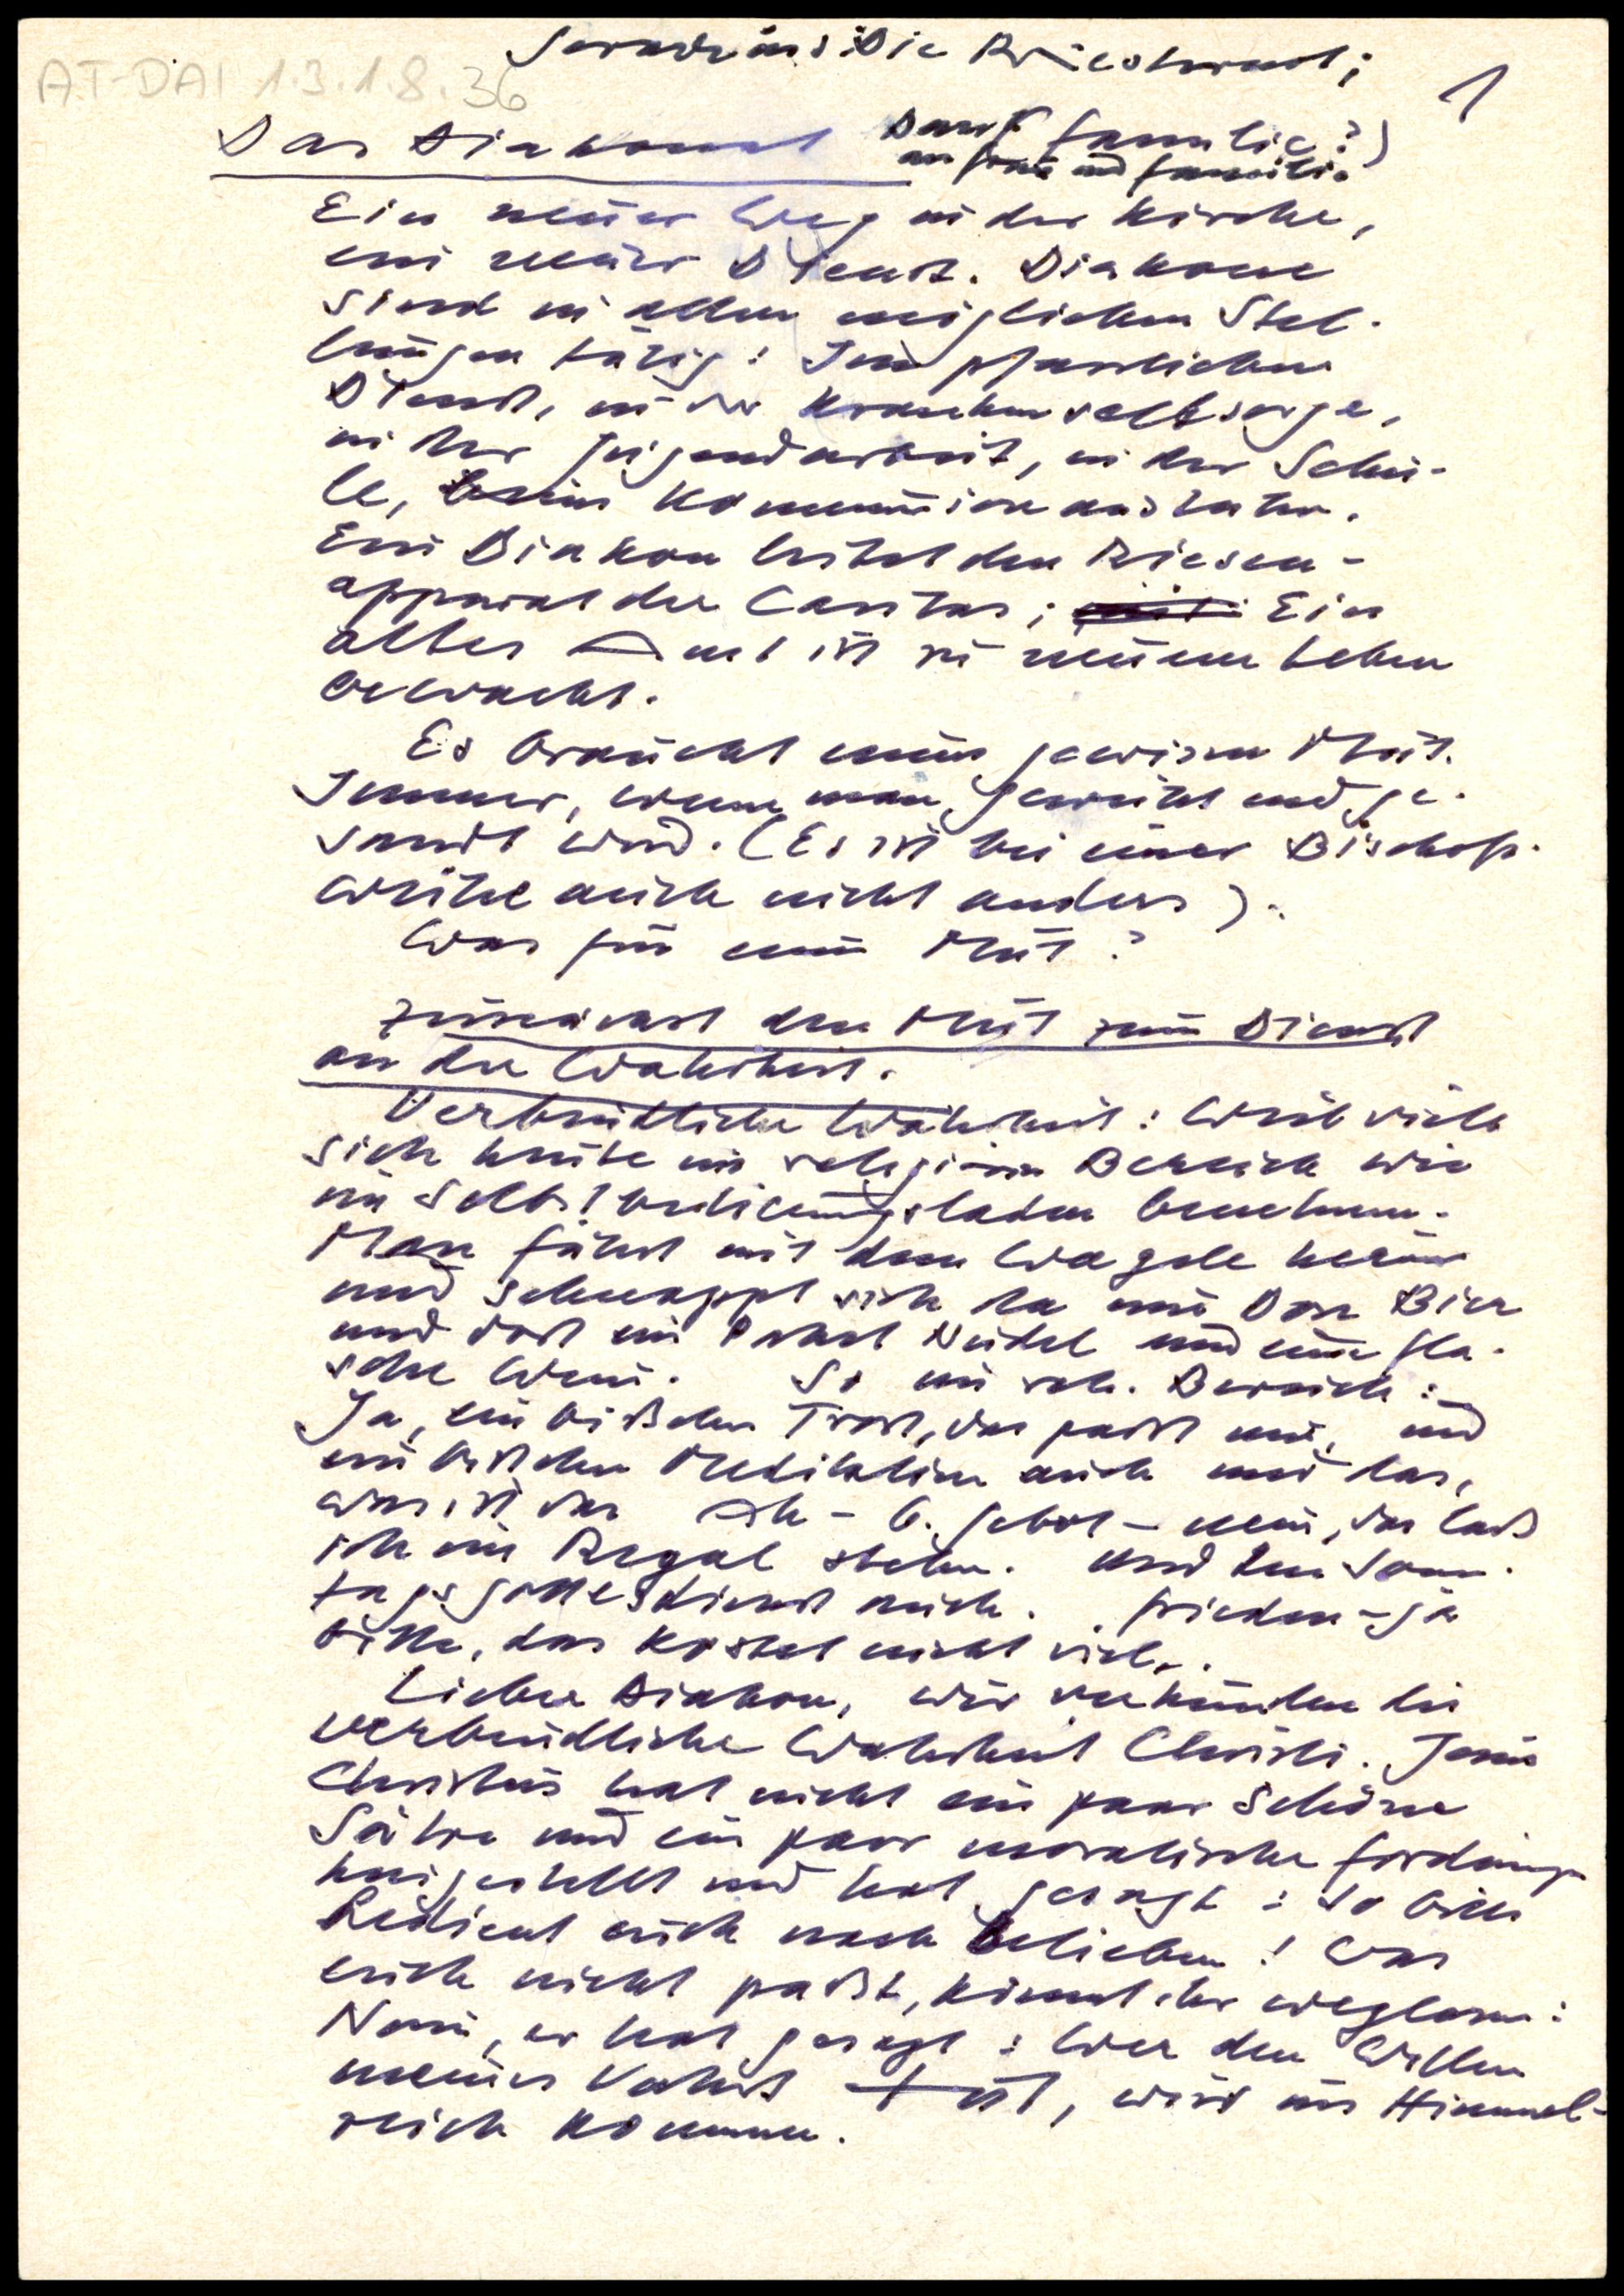 AT-DAI 1.3.1.8.36
1
Das Diakonat Dank Familie?)
an Frau und Familie
Ein neuer Weg in der Kirche,
ein neuer Dienst. Diakone
sind in allen möglichen Stel-
lungen tätig: Im pfarrlichen
Dienst, in der Krankenseelsorge,
in der Jugendarbeit, in der Schu-
le, beim Kommunionausteilen.
Ein Diakon leitet den Riesen-
apparat der Caritas; Ein
altes Amt ist zu neuem Leben
erwacht.
Es braucht einen gewissen Mut.
Immer, wenn man geweiht und ge-
sandt wird. (Es ist bei einer Bischofs-
weihe auch nicht anders).
Was für ein Mut?
Zunächst den Mut zum Dienst
an der Wahrheit.
Verbindliche Wahrheit: Weil viele
sich heute im religiösen Bereich wie
im Selbstbedienungsladen benehmen.
Man fährt mit dem Wagele herum
und schnappt sich da eine Dose Bier
und dort ein Paket Nudel und eine Fla-
sche Wein. So im rel. Bereich:
Ja, ein bißchen Trost, das paßt mir, und
ein bißchen Meditation auch und das,
was ist das Ah - 6. Gebot - nein, das laß
ich im Regal stehen. Und den Sonn-
tagsgottesdienst auch. Frieden - ja
bitte, das kostet nicht viel..
Lieber Diakon, wir verkünden die
verbindliche Wahrheit Christi. Jesus
Christus hat nicht ein paar schöne
Sätze und ein paar moralische Forderungen
hingestellt und hat gesagt: So bitte
Bedient euch nach Belieben! Was
euch nicht paßt, könnt ihr weglassen:
Nein, er hat gesagt: Wer den Willen
meines Vaters tut, wird ins Himmel-
reich kommen.